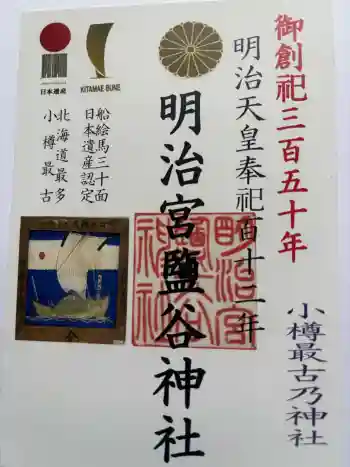 御創祀三百五十年
明治天皇奉祀百十二年
明治宮鹽谷神社
小樽最古乃神社
日本遺産
KITAMAE-BUNE
船絵馬三十面
日本遺産認定
北海道最多
小樽最古